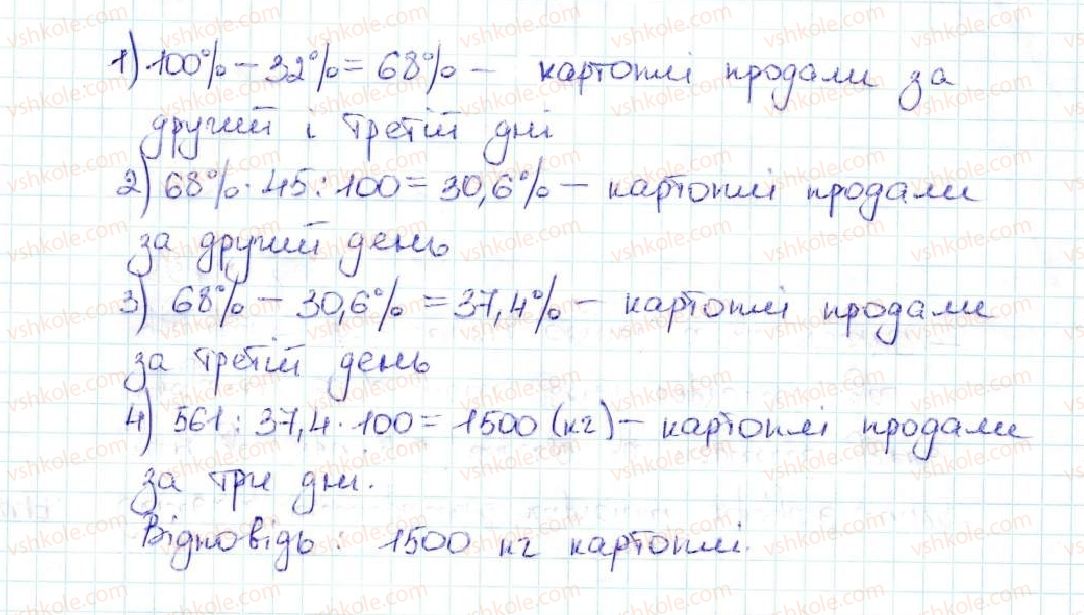 1) 100% - 32% = 68% - картоплі продали за
другий і третій дні
2) 68% · 45 : 100 = 30,6% - картоплі продали
за другий день
3) 68% - 30,6% = 37,4% - картоплі продали
за третій день
4) 561 : 37,4 · 100 = 1500 (кг) - картоплі продали
за три дні.
Відповідь : 1500 кг картоплі.